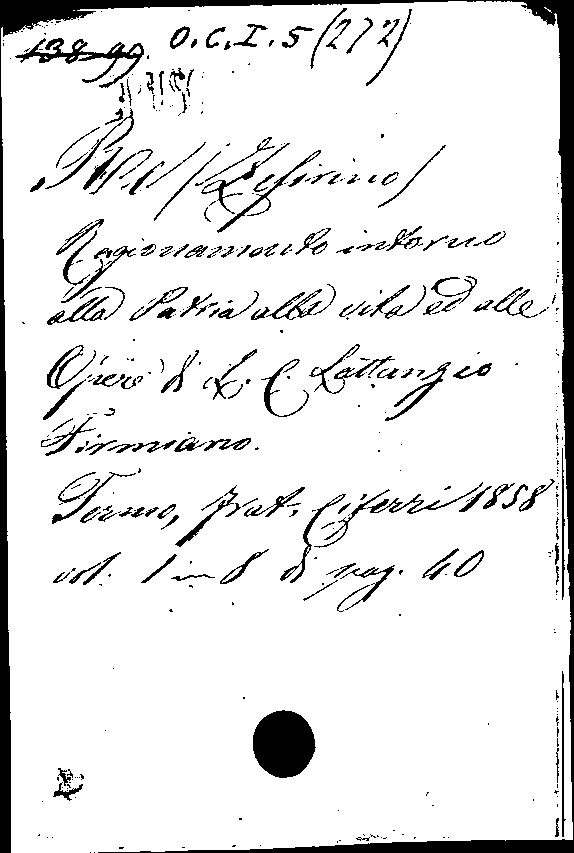 138 99. O.C.I.5 (272)
(Zefirino)
Ragionamento intorno
alla Patria alla vita ed alle
Opere di L. C. Lattanzio
Firmiano.
Fermo, frat. Ciferri 1858
vol. 1 in 8 di pag. 40